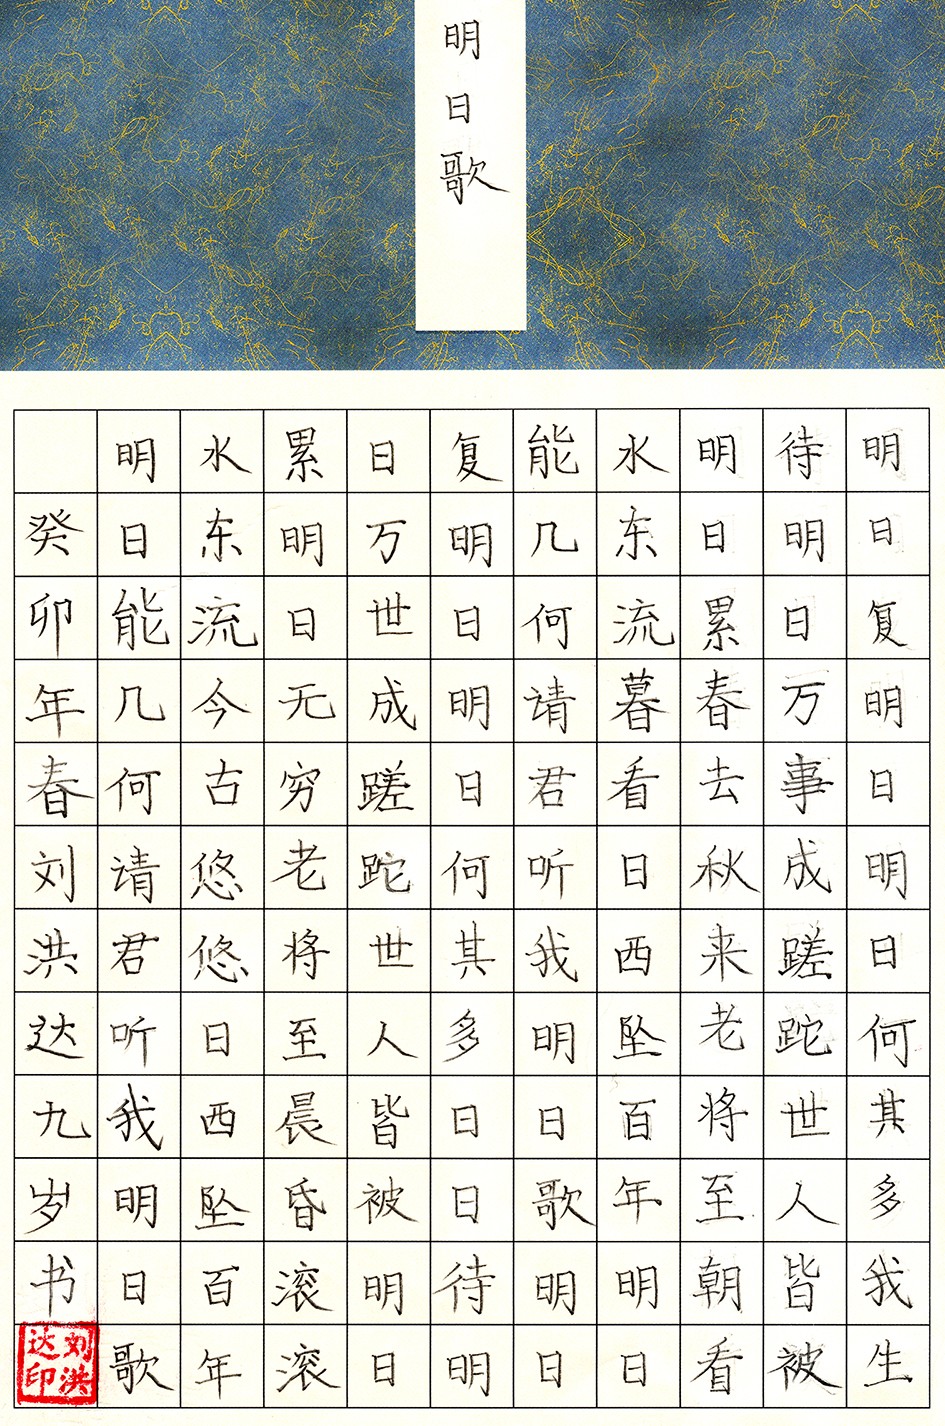 明日歌
明日复明日明日何其多我生
待明日万事成蹉跎世人皆被
明日累春去秋来老将至朝看
水东流暮看日西坠百年明日
能几何请君听我明日歌明日
复明日明日何其多日日待明
日万世成蹉跎世人皆被明日
累明日无穷老将至晨昏滚滚
水东流今古悠悠日西坠百年
明日能几何请君听我明日歌
癸卯年春刘洪达九岁书
刘洪
达印